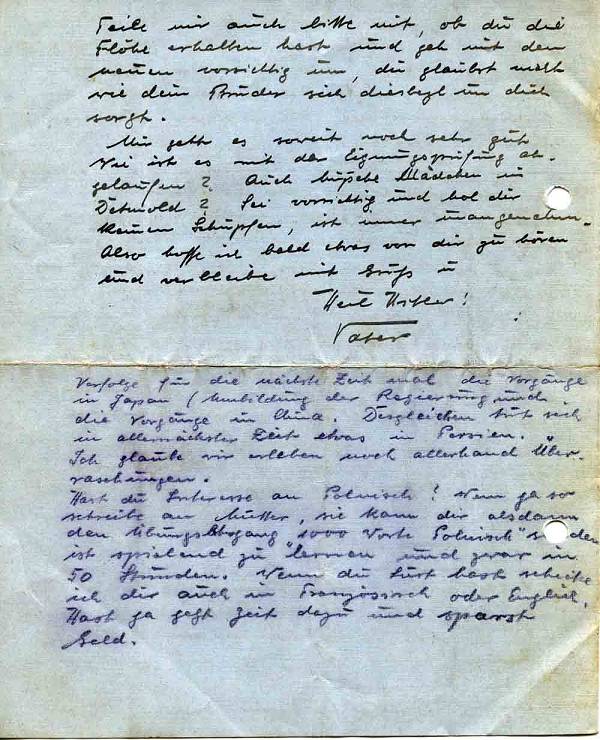 Teile mir auch bitte mit, ob du die
Flöhe erhalten hast und geh mit den
neuen vorsichtig um, du glaubst nicht
wie dein Bruder sich diesbezl um dich
sorgt.
Mir geht es soweit noch sehr gut
Wie ist es mit der Eignungsprüfung ab-
gelaufen? Auch hübsche Mädchen in
Detmold? Sei vorsichtig und hol dir
keinen Schupfen, ist immer unangenehm.
Also hoffe ich bald etwas von dir zu hören
und verbleibe mit Gruß u
Heil Hitler!
Vater
Verfolge für die nächste Zeit mal die Vorgänge
in Japan (Umbildung der Regierung und
die Vorgänge in China. Desgleichen tut sich
in allernächster Zeit etwas in Persien.
Ich glaube wir erleben noch allerhand Über-
raschungen.
Hast du Interesse an Polnisch? Wenn ja so
schreibe an Mutter, sie kann dir alsdann
den "1000 Worte Polnisch"
ist spielend zu lernen und zwar in
50 Stunden. Wenn du Lust hast schicke
ich dir auch in Französisch oder Englisch.
Hast ja jetzt Zeit dazu und sparst
Geld.